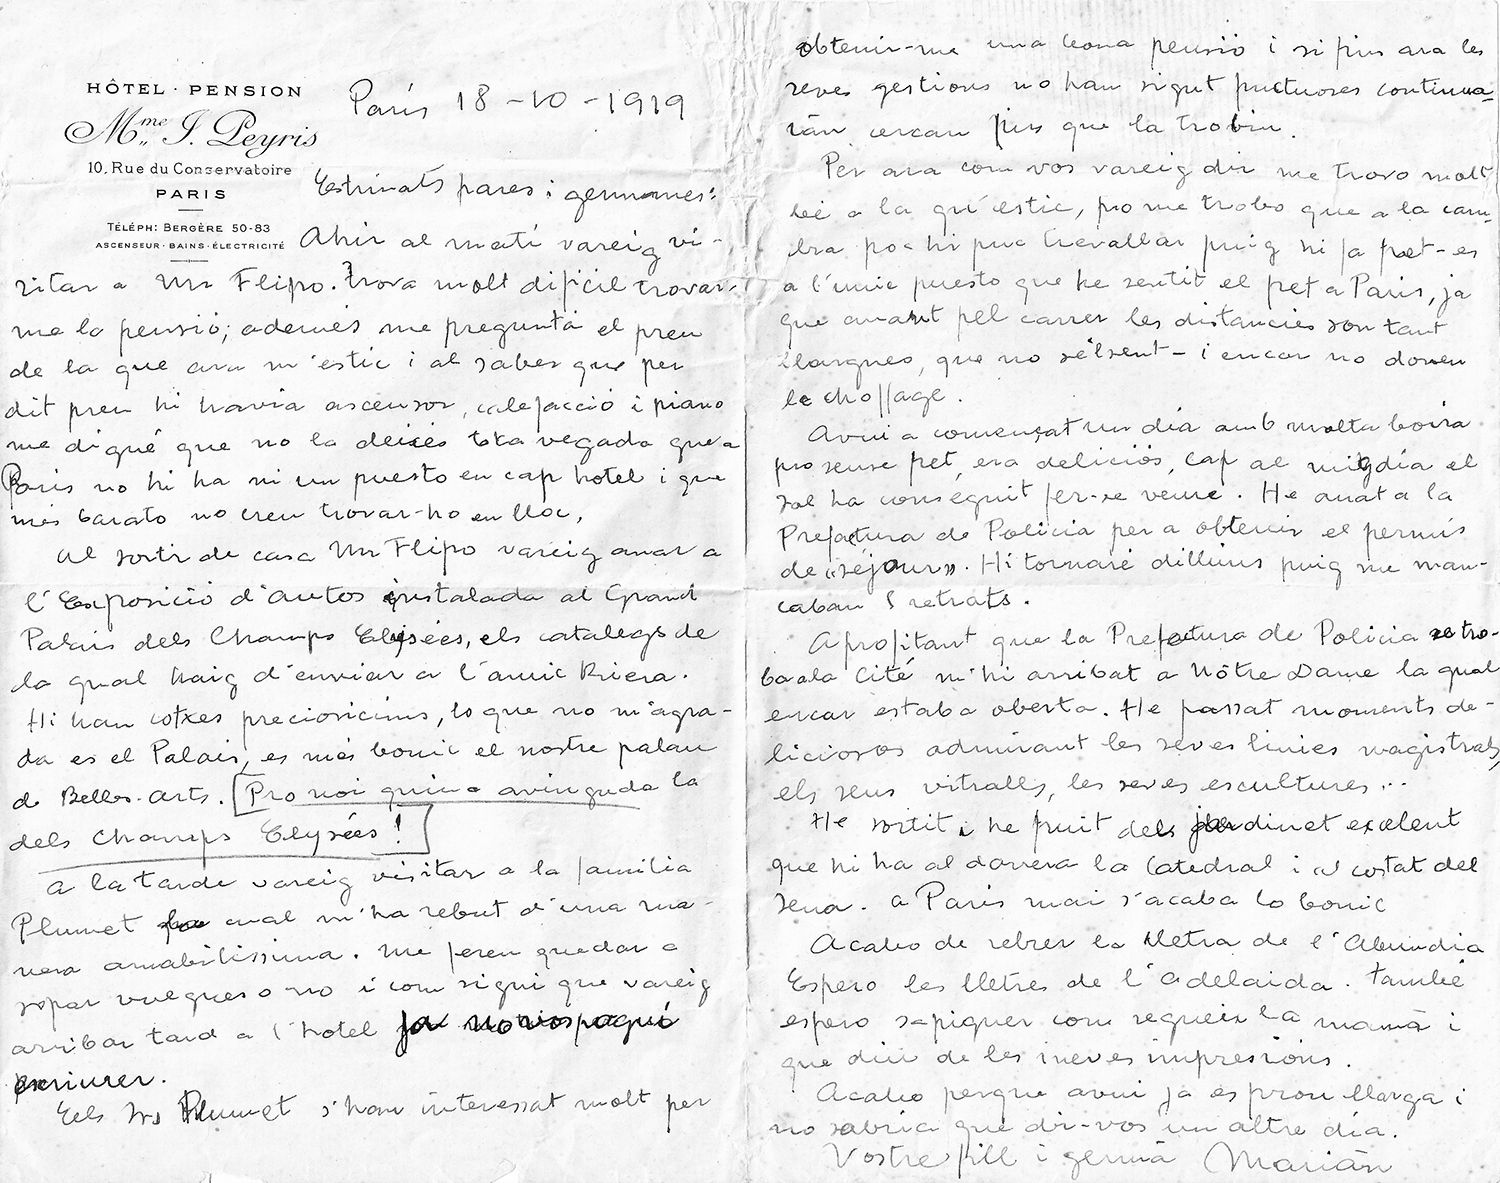 HÔTEL · PENSION
Mme J. Peyris
10, Rue du Conservatoire
PARIS
TÉLÉPH: BERGÈRE 50-83
ASCENSEUR · BAINS · ÉLECTRICITÉ
París 18 - 10 - 1919
Estimats pares i germanes:
Ahir al matí vareig vi-
sitar a Mr Flipo. Trova molt dificil trovar-
me la pensió; ademés me preguntá el preu
de la que ara m'estic i al saber que per
dit preu hi havia ascensor, calefacció i piano
me digué que no la deixés tota vegada que a
Paris no hi ha ni un puesto en cap hotel i que
més barato no creu trovar-ho en lloc,
Al sortir de casa Mr Flipo vareig anar a
l'Exposició d'autos instalada al Grand
Palais dels Champs Elysées, els catalegs de
la qual haig d'enviar a l'amic Riera.
Hi han cotxes preciosicims, lo que no m'agra-
da es el Palais, es més bonic el nostre palau
de Belles-arts. Pro noi quina avinguda la
dels Champs Elysées!
A la tarde vareig visitar a la familia
Plumet la cual m'ha rebut d'una ma-
nera amabilissima. Me feren quedar a
sopar vulgues o no i com sigui que vareig
arribar tard a l'hotel ja no vos pogui
escriurer.
Els Srs Plumet s'han interessat molt per
obtenir-me una bona pensió i si fins ara les
seves gestions no han sigut fructuoses continua-
rán cercan fins que la trobin.
Per ara com vos vareig dir me trovo molt
bé a la qu'estic, pro me trobo que a la cam-
bra poc hi puc trevallar puig hi fa fret - es
a l'unic puesto que he sentit el fret a París, ja
que anant pel carrer les distancies son tant
llargues, que no se'l sent - i encar no donen
le choffage.
Avui a començat un dia amb molta boira
pro sense fret, era deliciós, cap al migdia el
sol ha conseguit fer-se veure. He anat a la
Prefectura de Policia per a obtenir el permís
de «séjour». Hi tornaré dilluns puig me man-
caban 5 retrats.
Aprofitant que la Prefectura de Policia se tro-
ba a la Cité m'hi arribat a Nôtre Dame la qual
encar estaba oberta. He passat moments de-
liciosos admirant les seves linies magistrals,
els seus vitralls, les seves escultures...
He sortit i he fruit dels jardinet excelent
que hi ha al darrera la Catedral i al costat del
Sena. A París mai s'acaba lo bonic
Acabo de rebrer la lletra de l'Abundia
Espero les lletres de l'Adelaida. També
espero sapiguer com segueix la mamá i
que diu de les meves impresions.
Acabo perque avui ja es prou llarga i
no sabria que dir-vos un altre dia.
Vostre fill i germà Marián